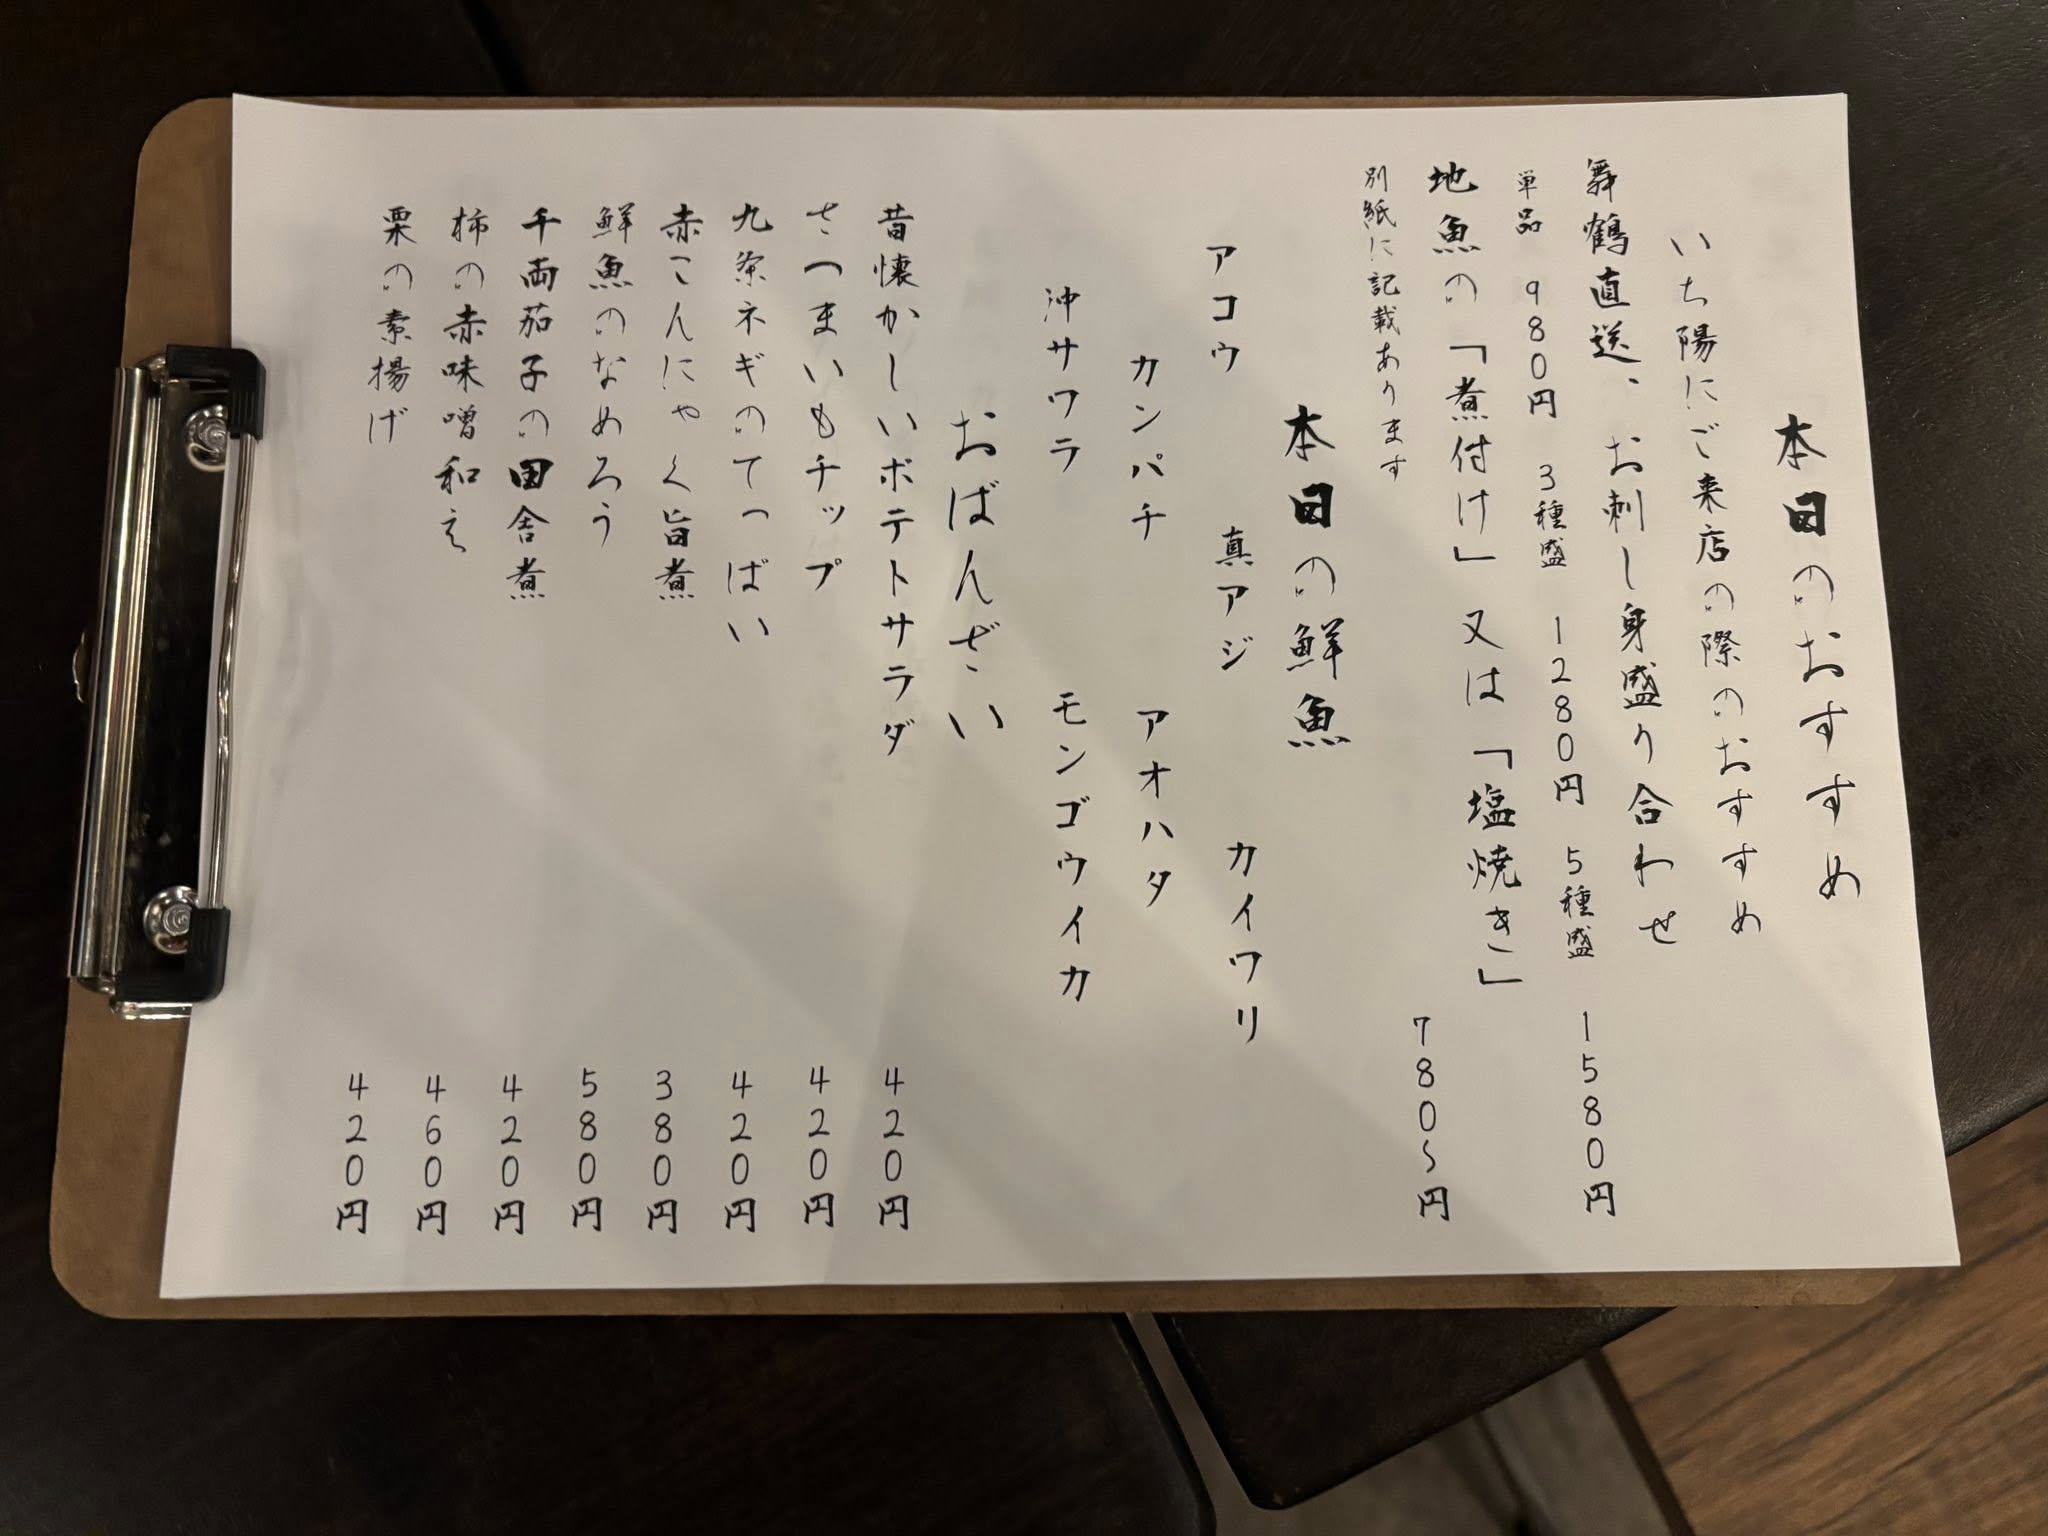 本日のおすすめ
いち陽にご来店の際のおすすめ
舞鶴直送、お刺し身盛り合わせ
単品 980円 3種盛 1280円 5種盛 1580円
地魚の「煮付け」又は「塩焼き」
別紙に記載あります 780〜円
本日の鮮魚
アコウ 真アジ カイワリ
カンパチ アオハタ
沖サワラ モンゴウイカ
おばんざい
昔懐かしいポテトサラダ 420円
さつまいもチップ 420円
九条ネギのてっぱい 420円
赤こんにゃく旨煮 380円
鮮魚のなめろう 580円
千両茄子の田舎煮 420円
柿の赤味噌和え 460円
栗の素揚げ 420円